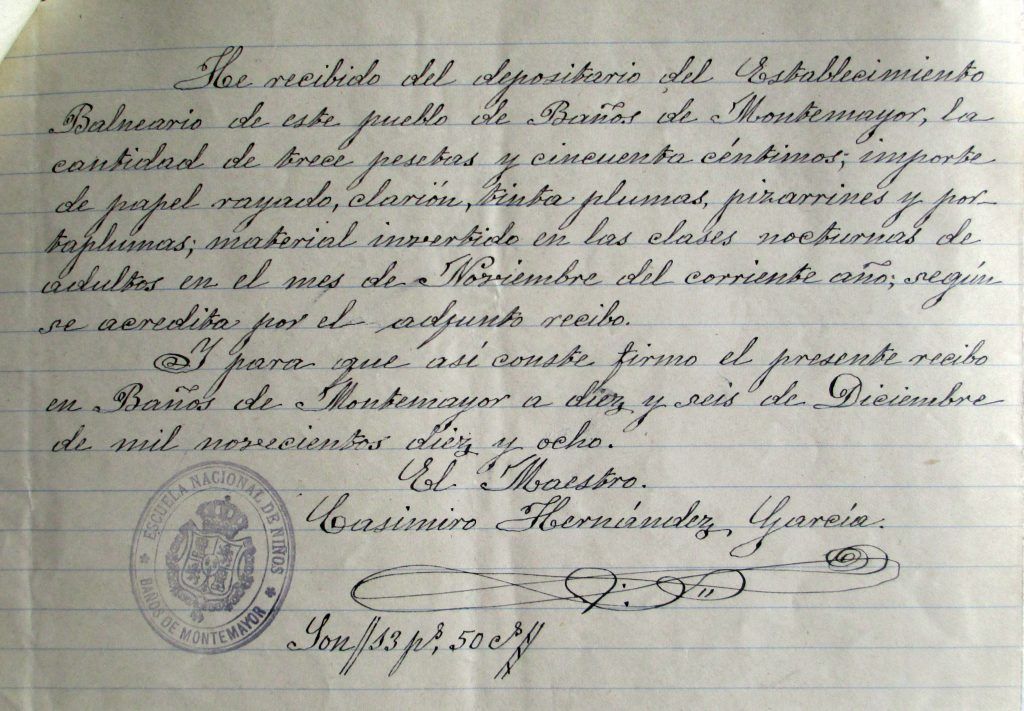 He recibido del depositario del Establecimiento
Balneario de este pueblo de Baños de Montemayor, la
cantidad de trece pesetas y cincuenta céntimos; importe
de papel rayado, clarión, tinta plumas, pizarrines y por-
taplumas; material invertido en las clases nocturnas de
adultos en el mes de Noviembre del corriente año; según
se acredita por el adjunto recibo.
Y para que así conste firmo el presente recibo
en Baños de Montemayor a diez y seis de Diciembre
de mil novecientos diez y ocho.
El Maestro.
Casimiro Hernández García.
ESCUELA NACIONAL DE NIÑOS
BAÑOS DE MONTEMAYOR
Son//13 ps, 50 cs//